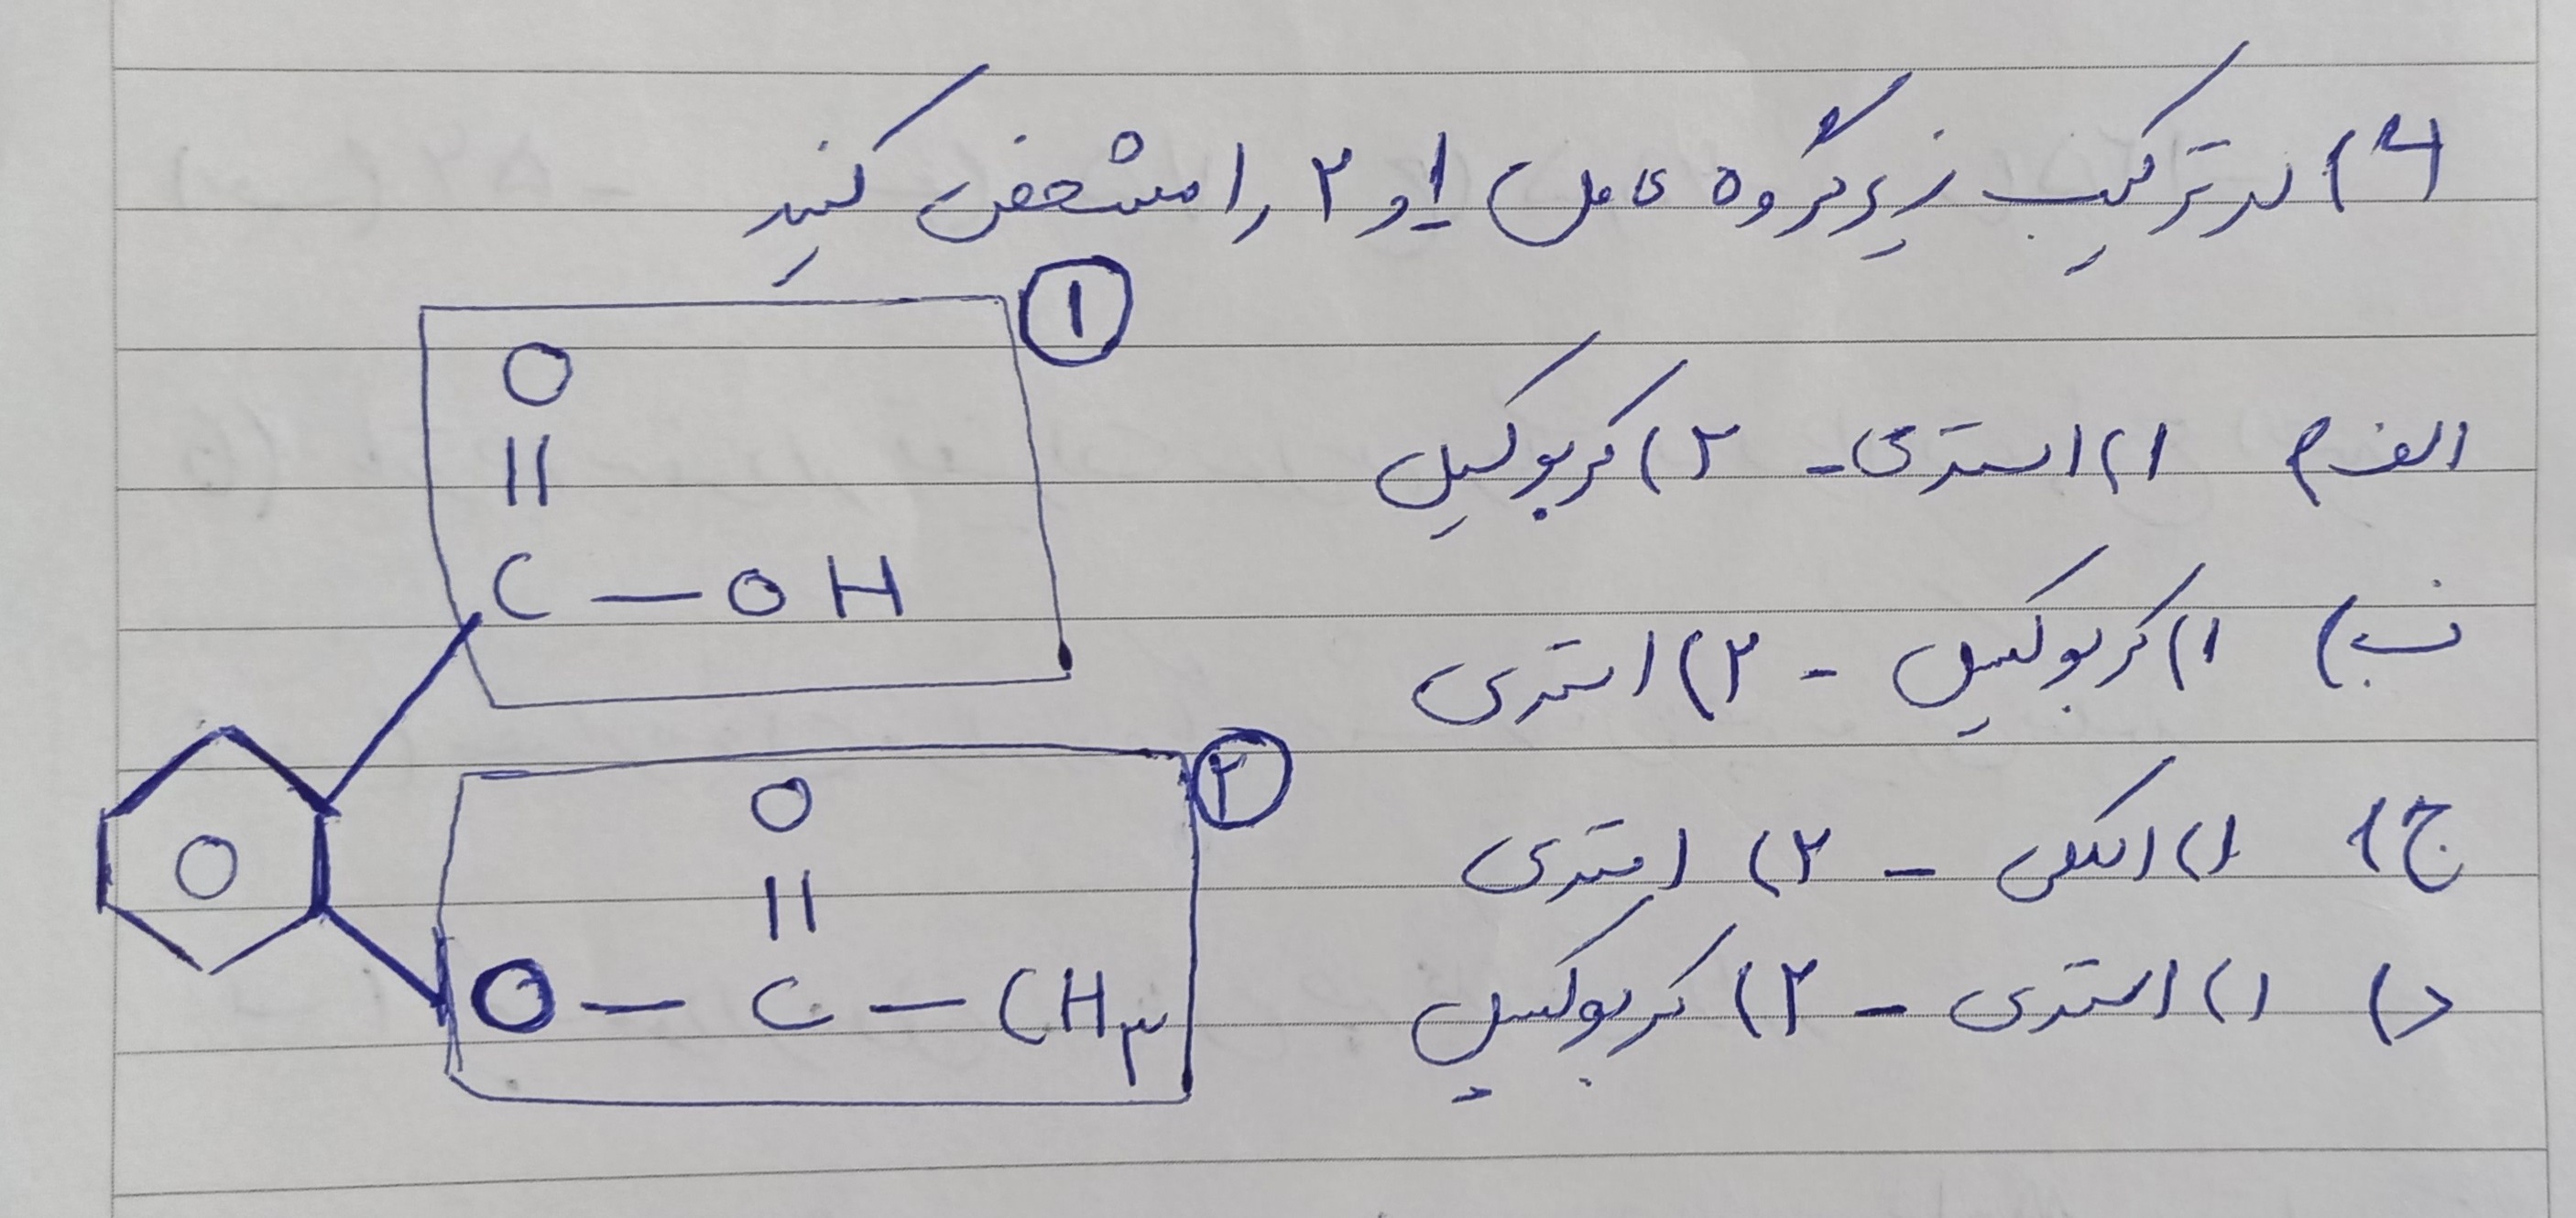 ۶) در ترکیب زیر گروه عامل ۱ و ۲ را مشخص کنید
الف) ۱) استری - ۲) کربوکسیل
ب) ۱) کربوکسیل - ۲) استری
ج) ۱) الکلی - ۲) استری
د) ۱) استری - ۲) کربوکسیل
①
O
||
C - OH
②
O
||
O - C - CH۳